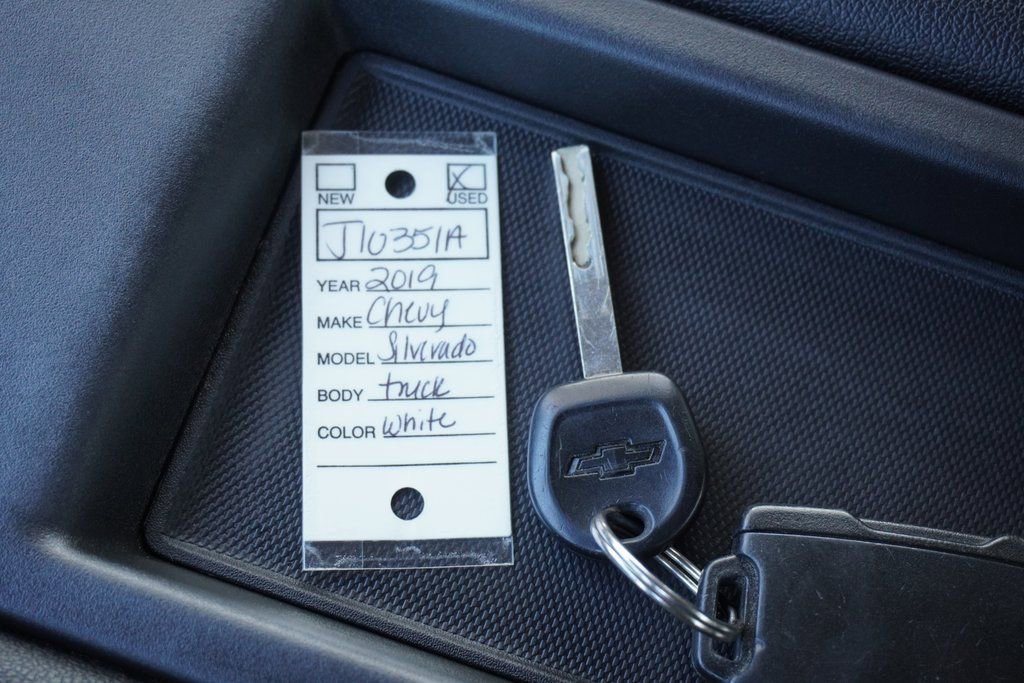 NEW USED
J10351A
YEAR 2019
MAKE Chevy
MODEL Silverado
BODY truck
COLOR white